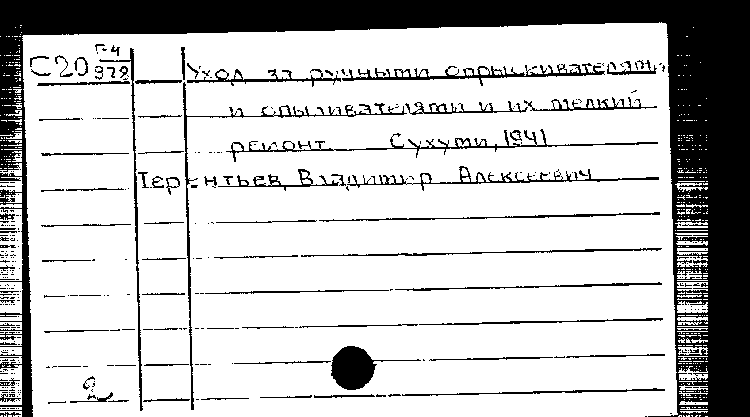 С20 Г-4
972
Уход за ручными опрыскивателями
и опыливателями и их мелкий
ремонт. Сухуми, 1941
Терентьев, Владимир Алексеевич
2